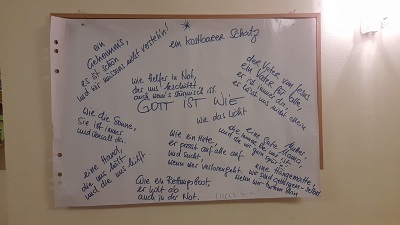 ein
Geheimnis,
es ist schön
und wir müssens nicht verstehn!
ein kostbarer Schatz
wie Helfer in Not,
der uns beschützt
auch wenn's stürmisch ist.
der Vater von Jesus
ein Vater für alle,
er ist immer da,
er lässt uns nicht allein
GOTT IST WIE
wie das Licht
Wie die Sonne,
Sie ist immer
und überall da.
eine Hand,
die uns hält
und die uns hilft
Wie ein Hirte,
er passt auf alle auf
und sucht,
wenn wer verlorengeht.
eine gute Mama,
die immer
eine Hängematte,
wir sind geborgen
wenn wir
Wie ein Rettungsboot,
er hilft ab
auch in der Not.